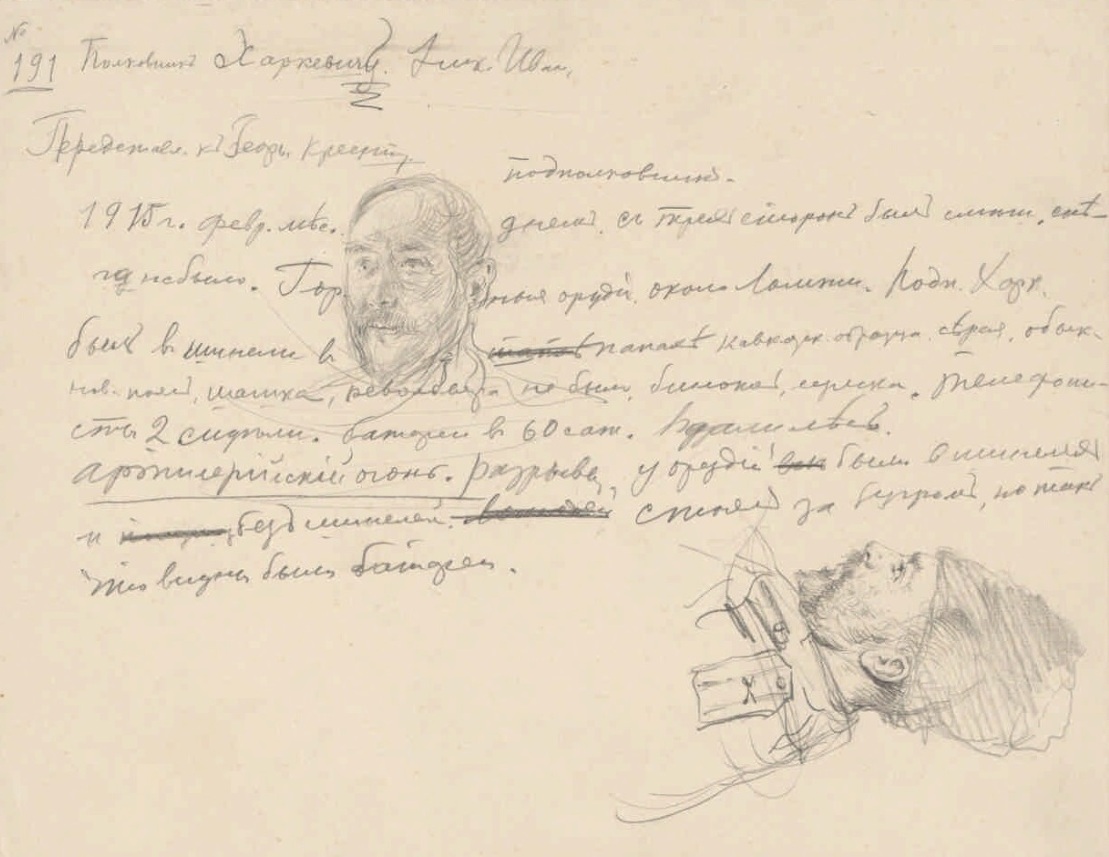 №
191 Полковникъ Харкевичъ. Алк. Иван.
Представл. къ Георг. Кресту.
подполковник.
1915 г. февр. мѣс. днемъ. съ трехъ сторонъ былъ снѣ-
га не было. Гор ныя орудія. около Ломжи. Подп. Харк.
былъ в шинели в папахѣ кавказск. образца. сѣрая, обык-
нов. пояс, шашка, револьвера не было, бинокль, сумка. Телефони-
сты 2 сидѣли. батареи в 60 саж. Вдали лѣсъ.
Артилерійскій огонь. Разрывы, у орудій были в шинеляхъ
и безъ шинелей. стоял за бугромъ, но такъ
что видна была батарея.